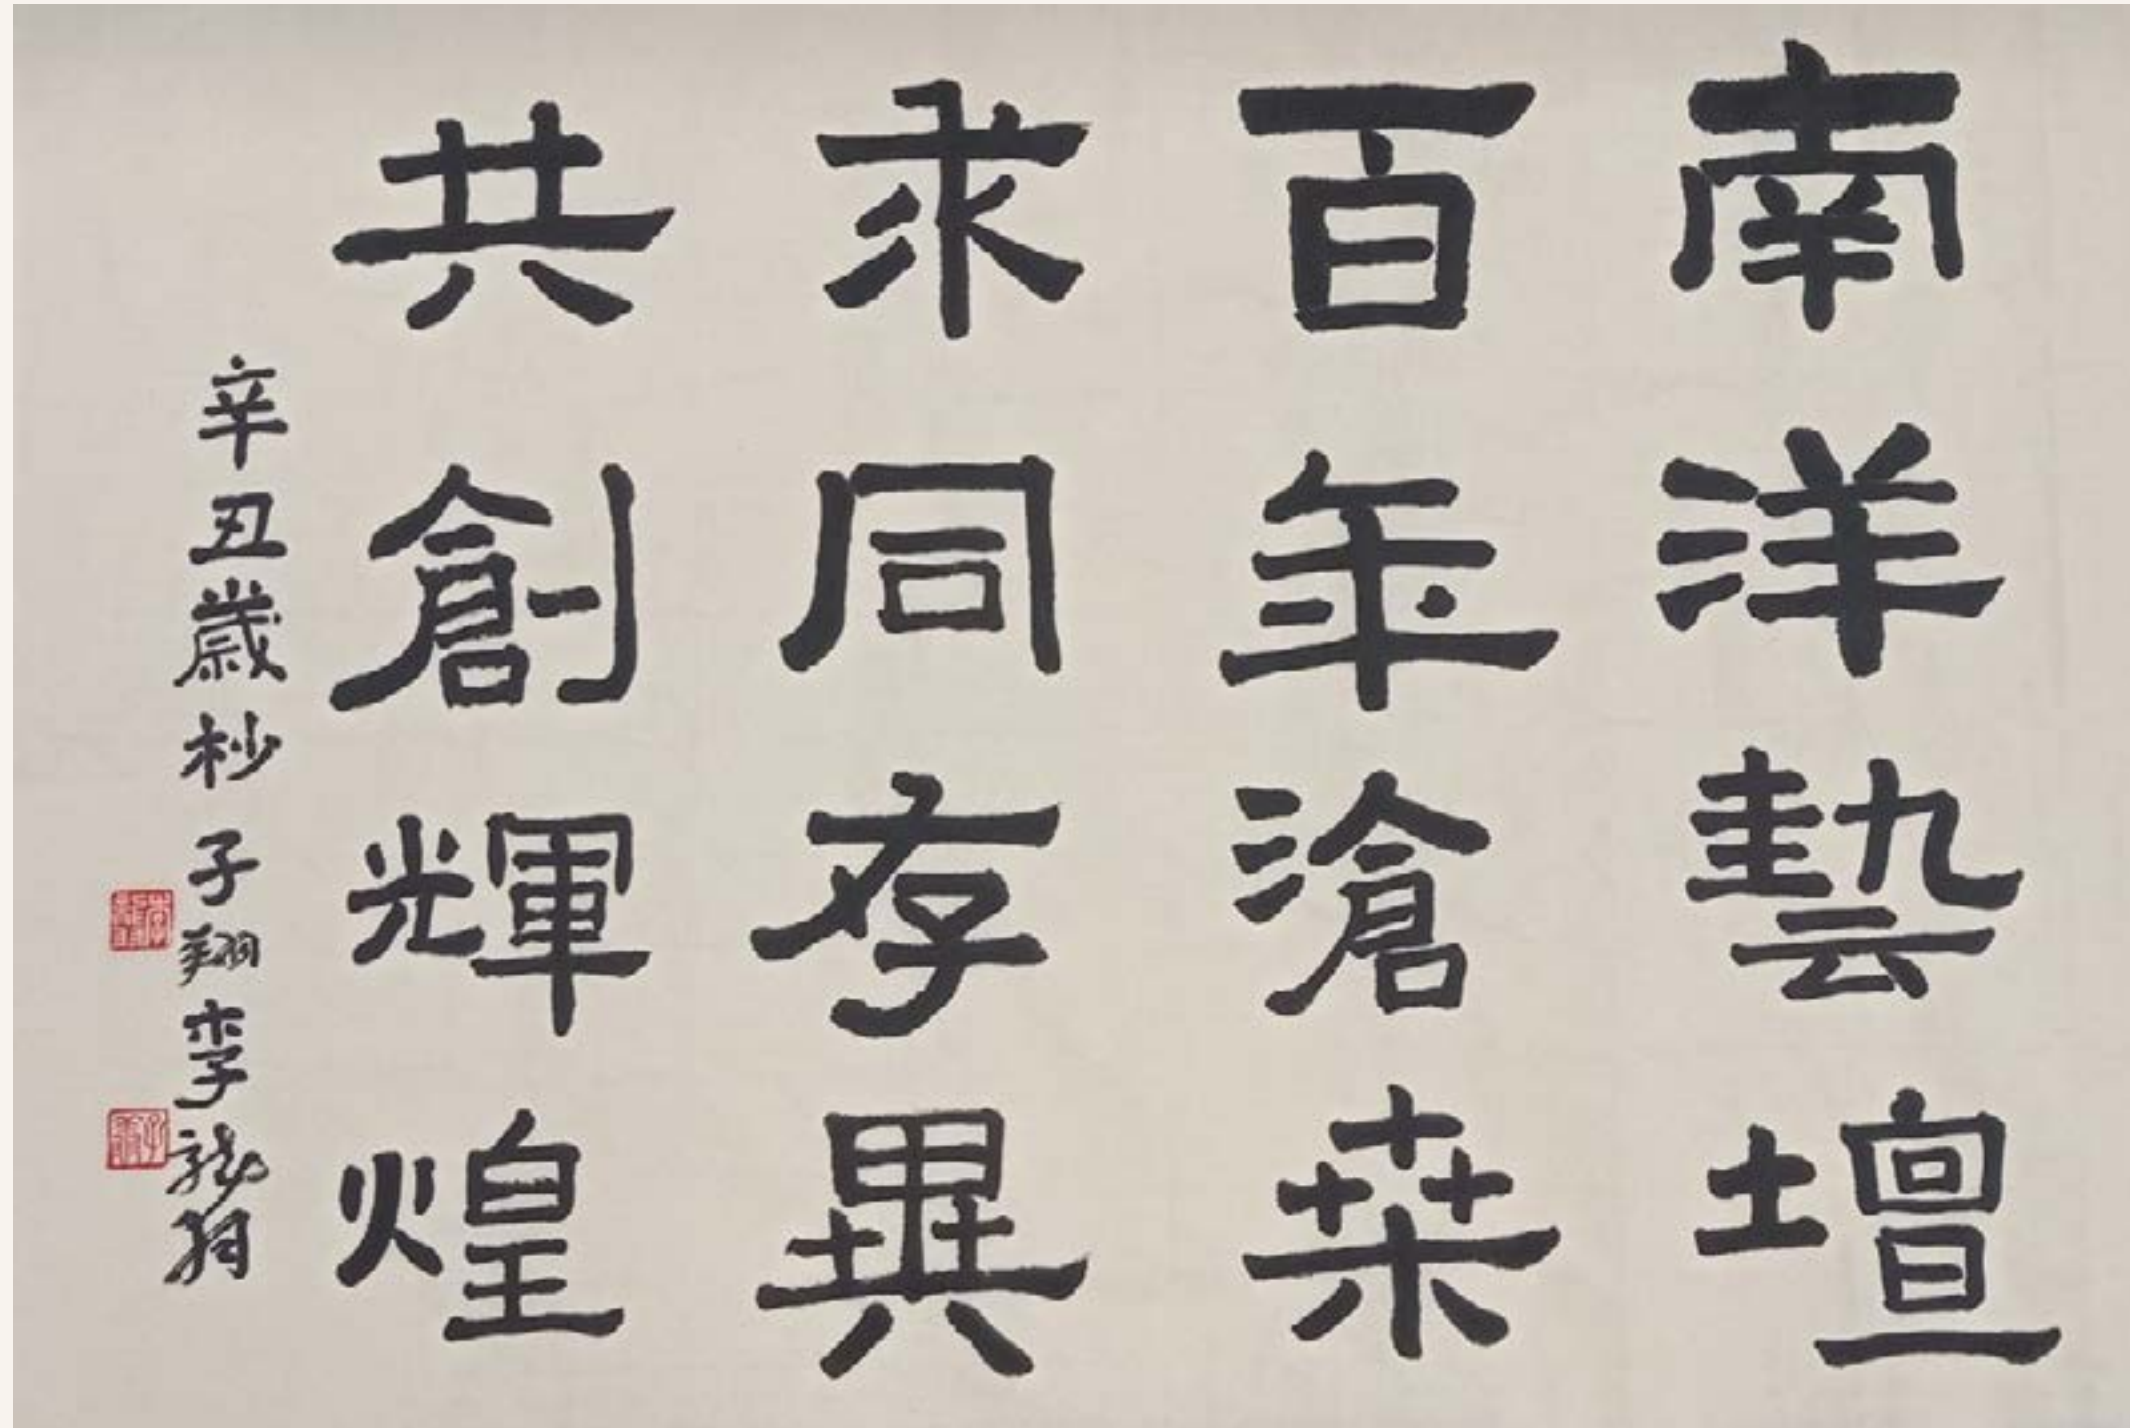 南洋藝壇
百年滄桒
求同存異
共創輝煌
辛丑歲杪子翔李龍翔